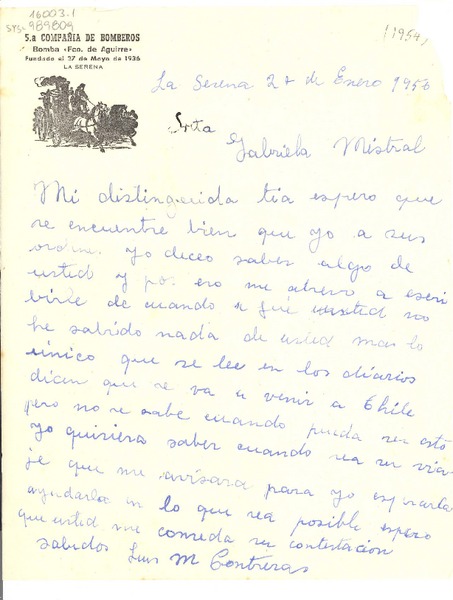 16003.1
SYS: 989809
(1954)
5.a COMPAÑIA DE BOMBEROS
Bomba «Fco. de Aguirre»
Fundada el 27 de Mayo de 1936
LA SERENA
La Serena 27 de Enero 1956
Srta
Gabriela Mistral
Mi distinguida tia espero que
se encuentre bien que yo a sus
ordne. yo deceo saber algo de
usted y por eso me atrevo a escri
birle de cuando se fué usted no
he sabido nada de usted mas lo
único que se lee en los diarios
dicen que se va a venir a Chile
pero no se sabe cuando pueda ser esto
yo quisiera saber cuando sea su via
je que me avisara para yo esperarla
ayudarla en lo que sea posible espero
que usted me conseda su contestacion
saludos Luis M Contreras